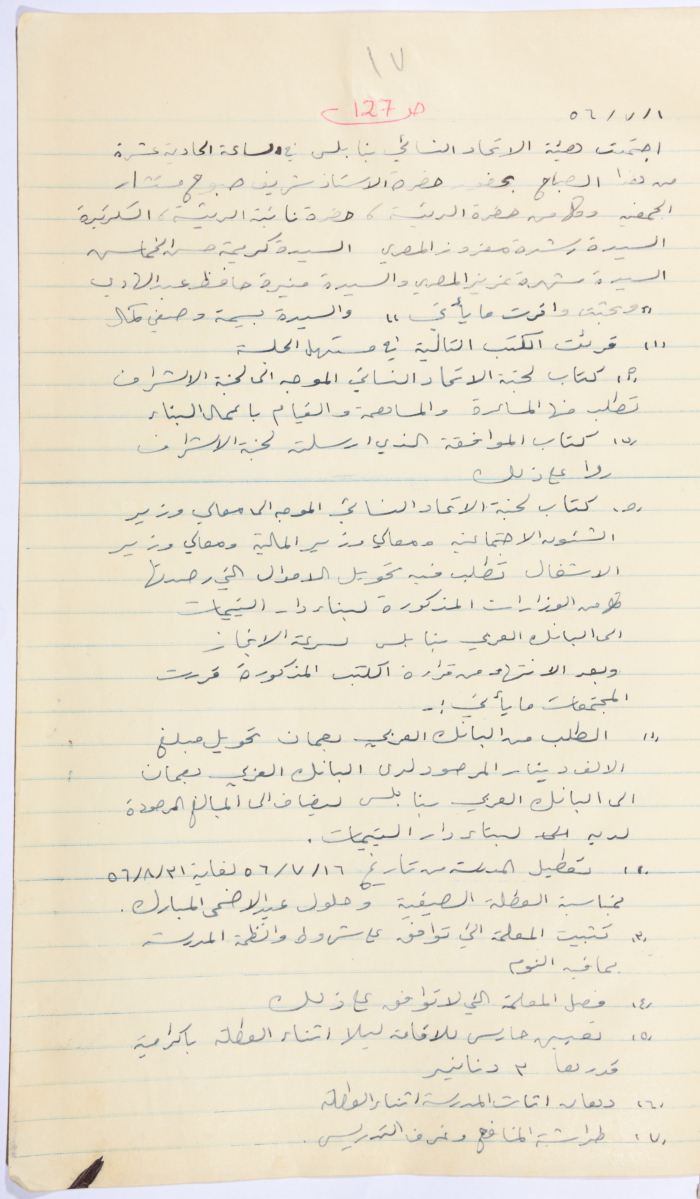 ١٧
ص 127
٥٦/٧/١
اجتمعت هيئة الاتحاد النسائي بنابلس في الساعة الحادية عشرة
من هذا الصباح بحضور حضرة الاستاذ شريف صبوح مستشار
الجمعية وكل من حضرة الرئيسة، حضرة نائبة الرئيسة، السكرتيرة
السيدة رشدة معزوز المصري السيدة كريمة حسن الخماس
السيدة شهرة عزيز المصري والسيدة منيرة حافظ عبد الهادي
وبحثت واقرت ما يأتي "" والسيدة بسيمة وصفي كمال
(١) قرئت الكتب التالية في مستهل الجلسة
كتاب لجنة الاتحاد النسائي الموجه الى لجنة الاشراف
تطلب منها المساعدة والمساهمة والقيام باعمال البناء
(ب) كتاب الموافقة الذي ارسلته لجنة الاشراف
ردا على ذلك
كتاب لجنة الاتحاد النسائي الموجه الى معالي وزير
الشئون الاجتماعية ومعالي وزير المالية ومعالي وزير
الاشغال تطلب فيه تحويل الاموال التي رصدتها
كل من الوزارات المذكورة لبناء دار اليتيمات
الى البانك العربي بنابلس لسرعة الانجاز
وبعد الانتهاء من قراءة الكتب المذكورة قررت
المجتمعات ما يأتي :-
(١) الطلب من البانك العربي بعمان تحويل مبلغ
الالف دينار المرصود لدى البانك العربي بعمان
الى البانك العربي بنابلس ليضاف الى المبالغ المرصودة
لديه لبناء دار اليتيمات.
(٢) تعطيل المدرسة من تاريخ ٥٦/٧/١٦ لغاية ٥٦/٨/٣١
بمناسبة العطلة الصيفية وحلول عيد الاضحى المبارك.
(٣) تثبيت المعلمة التي توافق على شروط وانظمة المدرسة
بما فيه النوم
(٤) فصل المعلمة التي لا توافق على ذلك
(٥) تعيين حارس للاقامة ليلا اثناء العطلة باكرامية
قدرها ٣ دنانير
(٦) دهان اثاث المدرسة اثناء العطلة
(٧) طراشة المنافع وغرف التدريس.